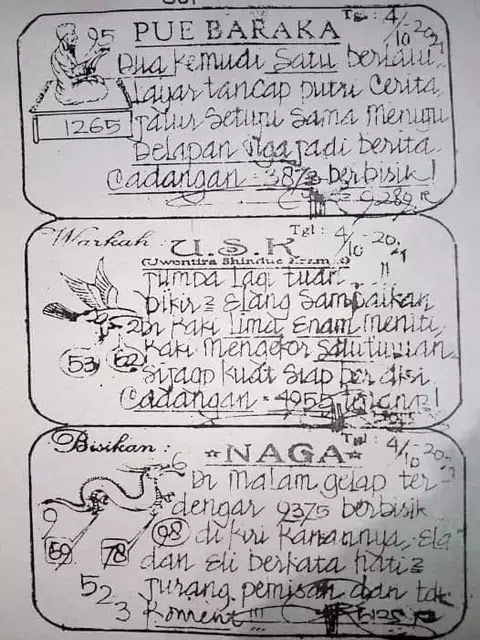 PUE BARAKA
Tgl: 4/10-2021
95
Dua Kemudi Satu berlalu
Layar tancap putri Cerita
1265
Jalur Seturi Sama menuju
Delapan Tiga jadi berita
Cadangan = 3873 berbisik!
Warkah:
U.S.K
Tgl: 4/10-2021
Jumpa lagi tuan
Dikir2 Elang Sampaikan
Kaki Lima Enam meniti
53 62
Kaki mengekor Satu
Sijago kuat Siap
Cadangan = 4955
Bisikan:
NAGA
Tgl: 4/10-202
6
Di malam gelap ter
dengar 9375 berbisik
9
98 di kiri Kanannya, Ela
59 78
dan Eli berkata hati2
Jurang pemisah dan tdk
523
Koment!!!